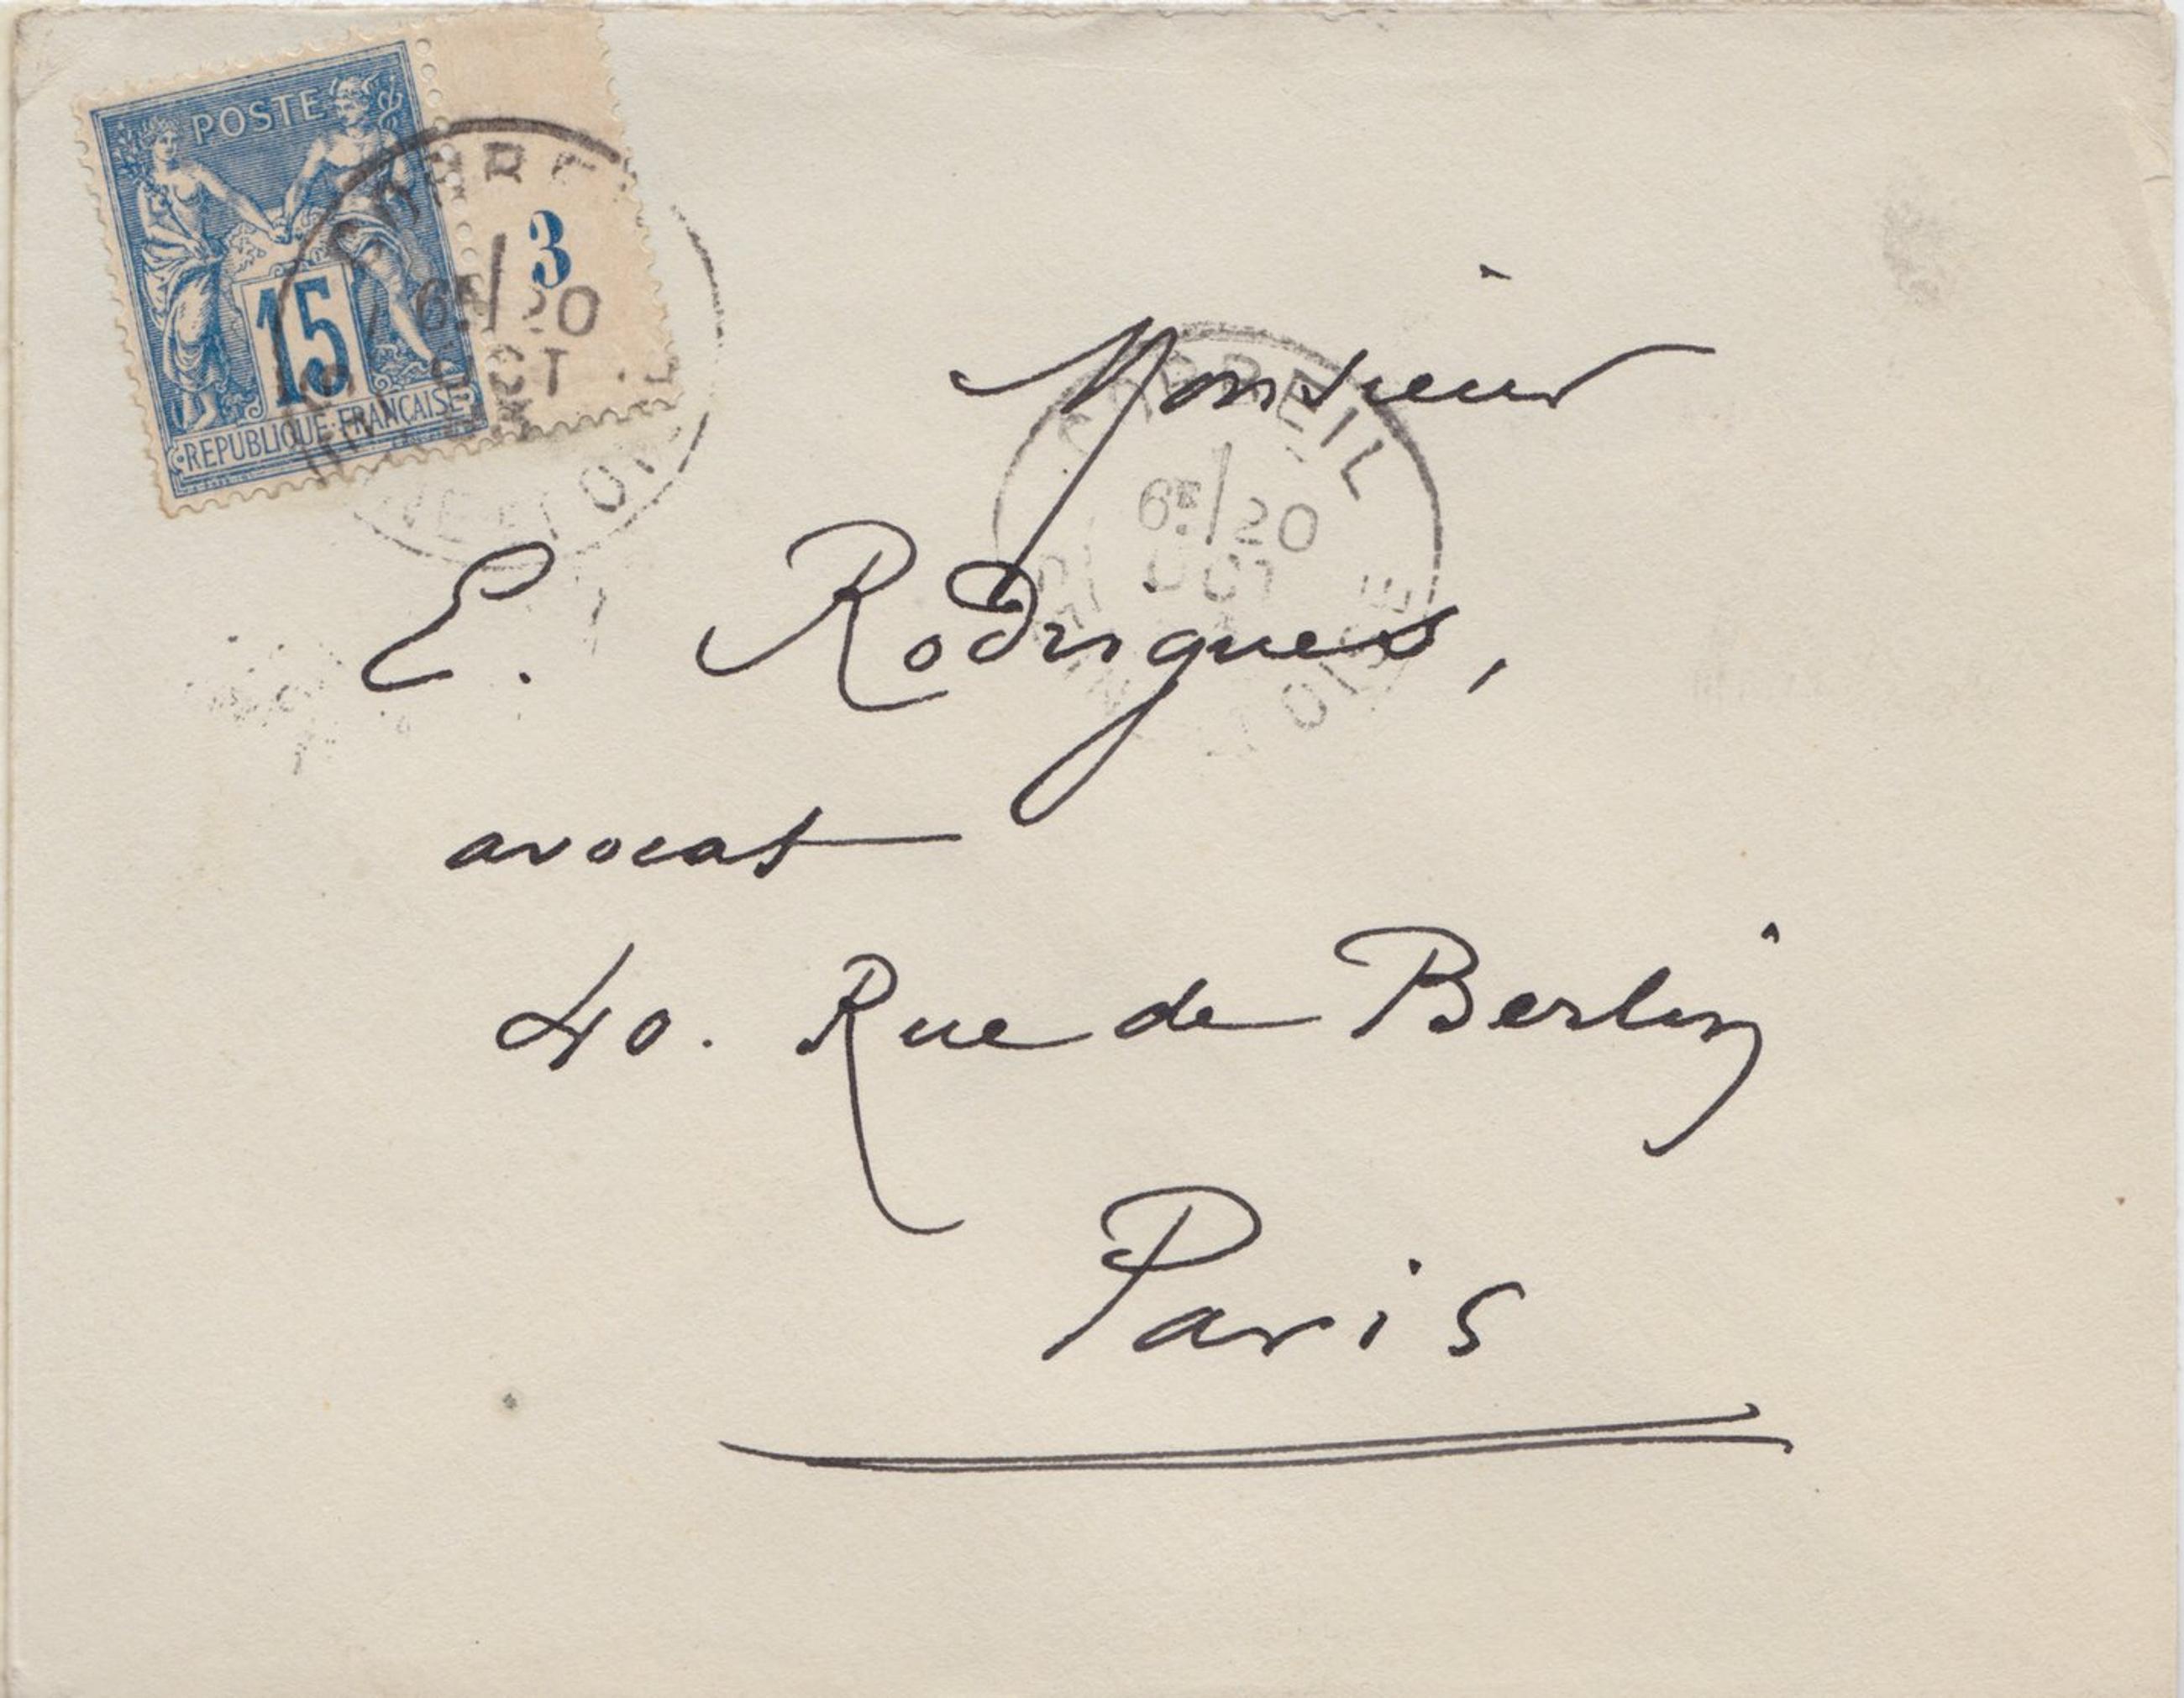 POSTE
15
REPUBLIQUE FRANÇAISE
3
6E/20
OCT
CORBEIL
6E/20
OCT
Monsieur
E. Rodrigues,
avocat
40. Rue de Berlin
Paris